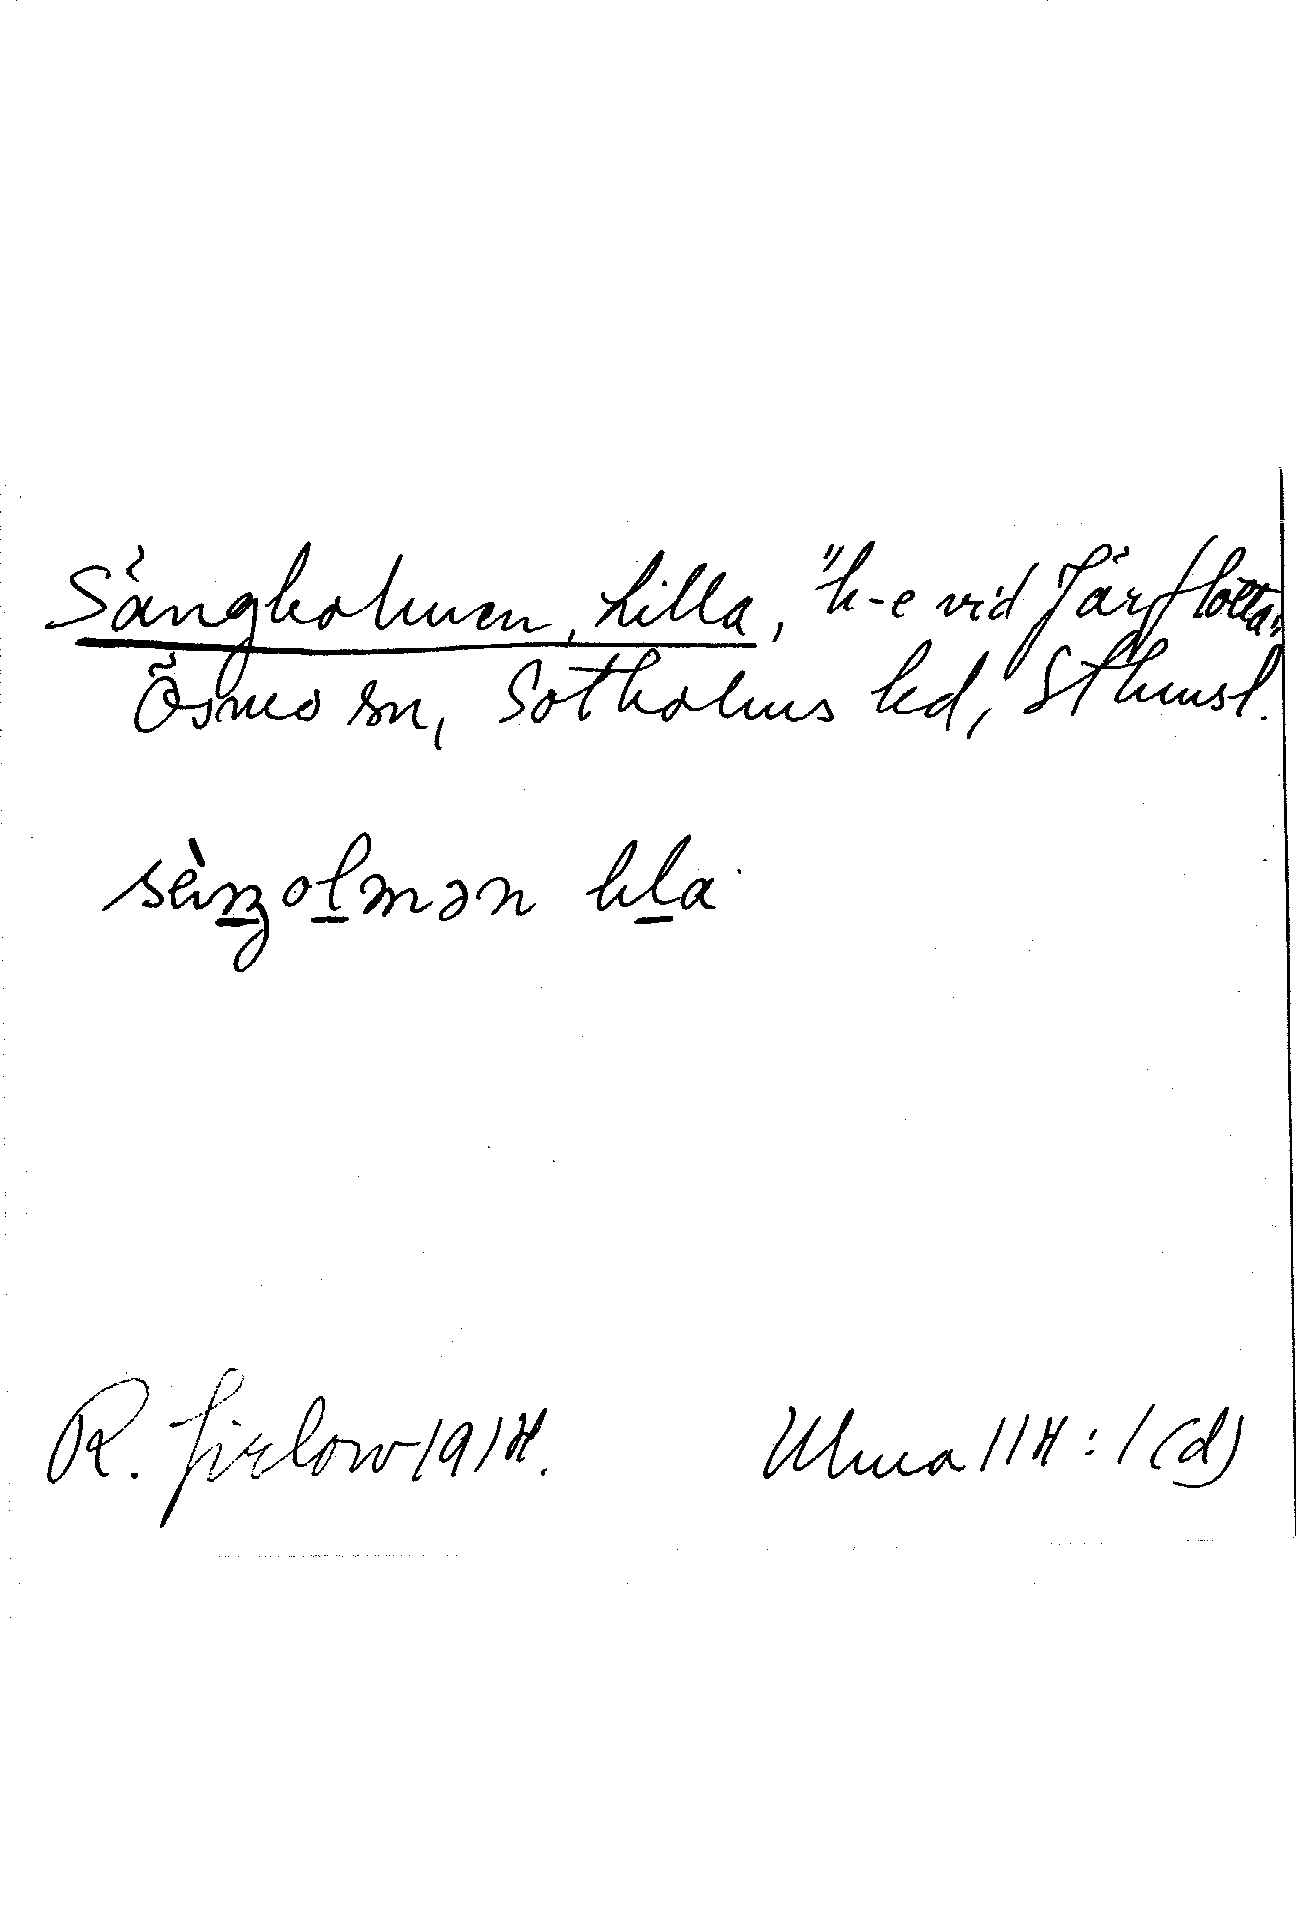 Sängholmen, Lilla, "h-e vid Järflotta"
Ösmo sn, Sotholms hd, Sthmsl.
lıla
R. Jirlow 1914.
Ulma 114:1(d)